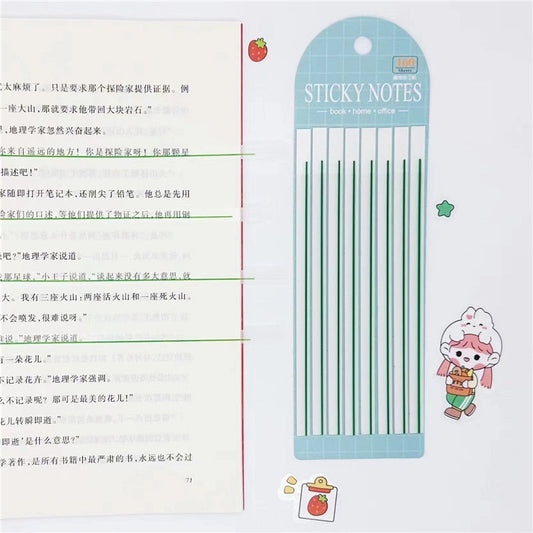 太麻烦了。只是要求那个探险家提供证据。例
一座大山，那就要求他带回大块岩石。”
，地理学家忽然兴奋起来。
你来自遥远的地方！你是探险家呀！你那颗星
描述吧！”
家随即打开笔记本，还削尖了铅笔。他总是先用
险家们的口述，等他们提供了物证之后，他再用钢
吧？”地理学家说道。
我那星球，”小王子说道，“谈起来没有多大意思，就
大。我有三座火山：两座活火山和一座死火山。
不会喷发，很难说呀。”
说。”地理学家说道。
有一朵花儿。”
不记录花卉。”地理学家强调。
么不记录呢？那可是最美的花儿！”
花儿转瞬即逝。”
即逝’是什么意思？”
学著作，是所有书籍中最严肃的书，永远也不会过
71
160
Sheets
STICKY NOTES
book • home • office